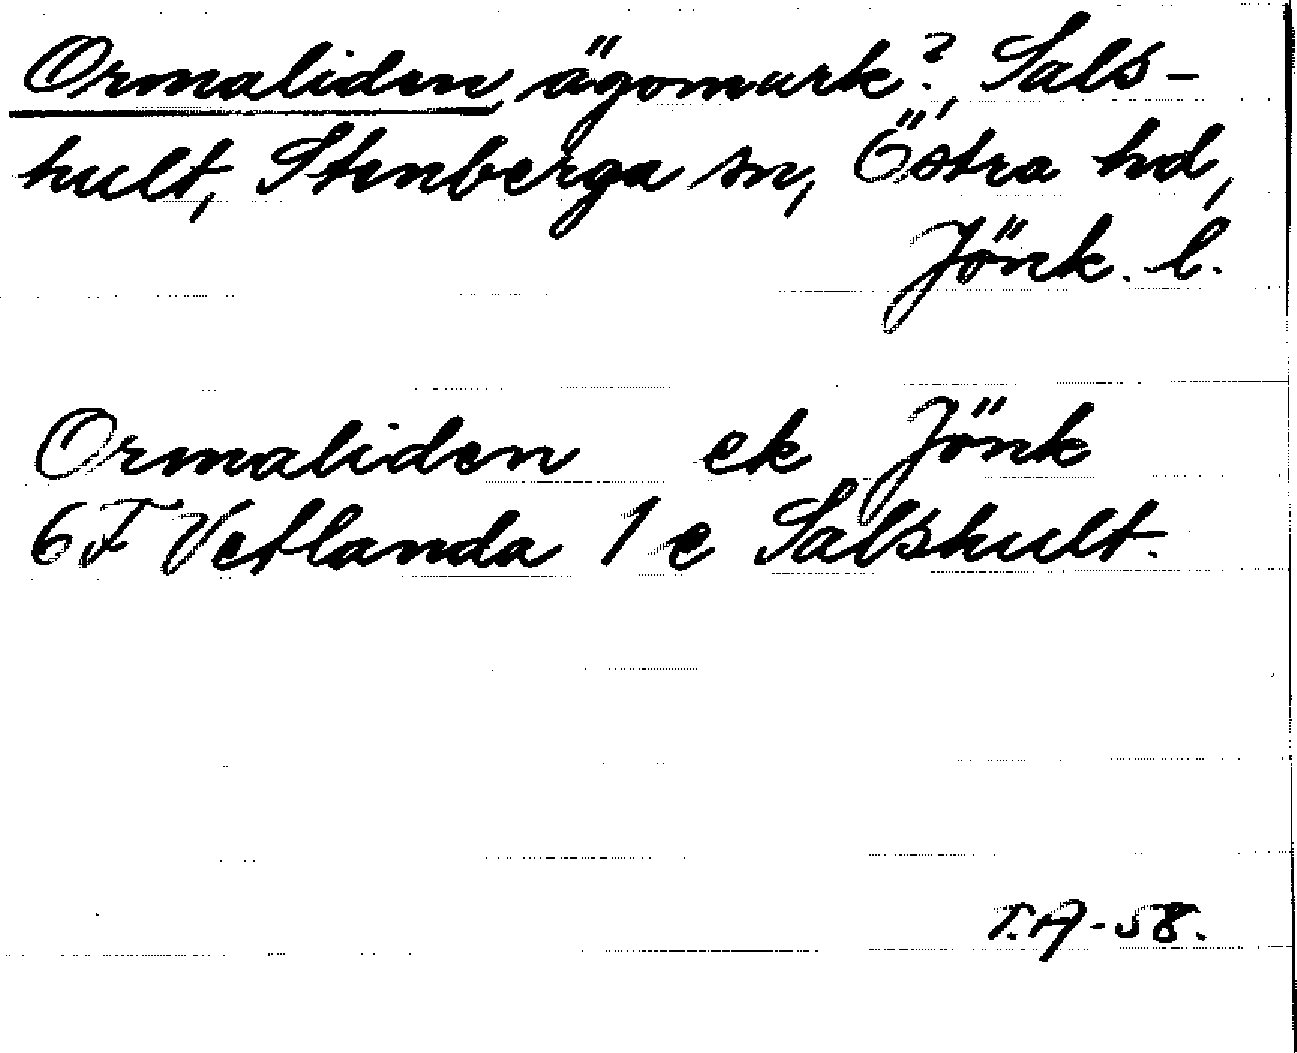 Ormaliden, ägomark?, Sals-
hult, Stenberga sn, Östra hd,
Jönk. l.
Ormaliden ek Jönk
6F Vetlanda 1 e Salshult.
T.A-58.